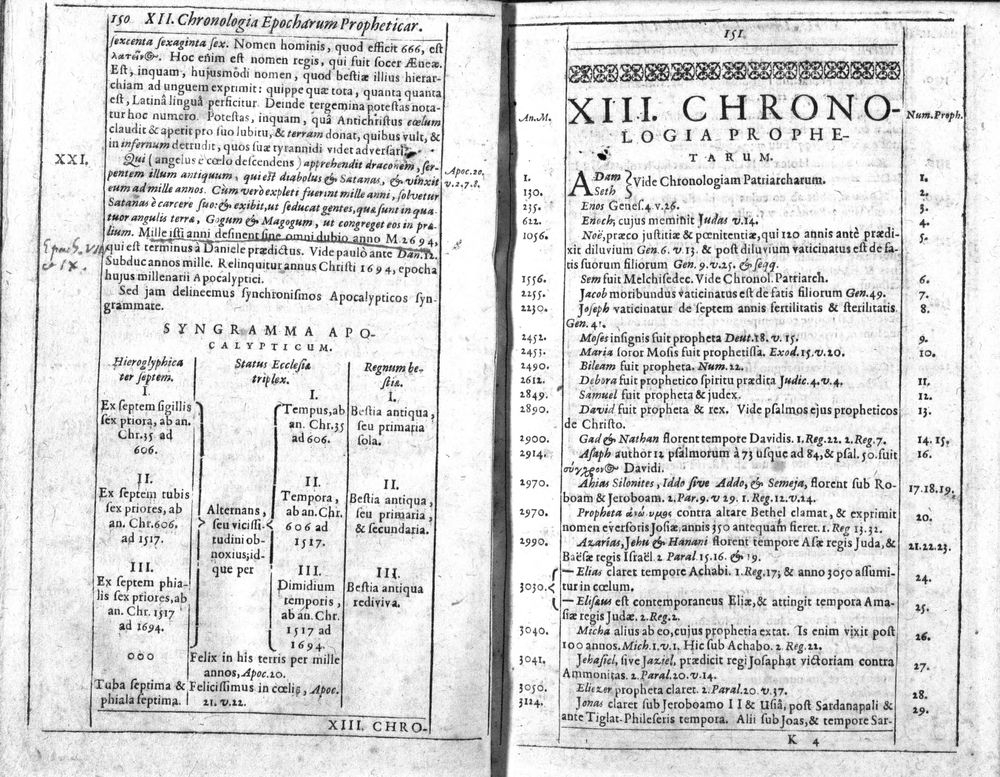 150 XII. Chronologia Epocharum Propheticar.
sexcenta sexaginta sex. Nomen hominis, quod efficit 666, est
Hoc enim est nomen regis, qui fuit socer Æneæ.
Est, inquam, hujusmodi nomen, quod bestiæ illius hierar-
chiam ad unguem exprimit: quippe quæ tota, quanta quanta
est, Latinâ linguâ perficitur. Deinde tergemina potestas nota-
tur hoc numero. Potestas, inquam, quâ Antichristus cœlum
claudit & aperit pro suo lubitu, & terram donat, quibus vult, &
in infernum detrudit, quos suæ tyrannidi videt adversari.
XXI.
Qui (angelus è cœlo descendens) apprehendit draconem, ser-
pentem illum antiquum, qui est diabolus & Satanas, & vinxit
eum ad mille annos. Cùm verò expleti fuerint mille anni, solvetur
Satanas è carcere suo: & exibit, ut seducat gentes, quæ sunt in qua-
tuor angulis terræ, Gogum & Magogum, ut congreget eos in præ-
lium. Mille isti anni desinent sine omni dubio anno M.2694,
qui est terminus à Daniele prædictus. Vide paulò ante Dan.12.
Subduc annos mille. Relinquitur annus Christi 1694, epocha
hujus millenarii Apocalyptici.
Apoc.20.
v.2.7.8.
Sed jam delineemus synchronismos Apocalypticos syn-
grammate.
SYNGRAMMA APO-
CALYPTICUM.
Hieroglyphica
ter septem.
I.
Ex septem sigillis
sex priora, ab an.
Chr.35 ad
606.
II.
Ex septem tubis
sex priores, ab
an. Chr.606.
ad 1517.
III.
Ex septem phia-
lis sex priores, ab
an. Chr. 1517
ad 1694.
Status Ecclesiæ
triplex.
Alternans,
seu vicissi-
tudini ob-
noxius; id-
que per
I.
Tempus, ab
an. Chr.35
ad 606.
II.
Tempora,
ab an. Chr.
606 ad
1517.
III.
Dimidium
temporis,
ab an. Chr.
1517 ad
1694.
Regnum be-
stiæ.
I.
Bestia antiqua,
seu primaria
sola.
II.
Bestia antiqua,
seu primaria,
& secundaria.
III.
Bestia antiqua
rediviva.
ooo
Felix in his terris per mille
annos, Apoc.20.
Tuba septima &
phiala septima.
Felicissimus in cœlis, Apoc.
21. v.22.
XIII. CHRO-
151
XIII. CHRONO-
LOGIA PROPHE-
TARUM.
An.M.
Num.Proph.
1. ADam } Vide Chronologiam Patriarcharum. 1.
130. Seth 2.
235. Enos Genes.4.v.26. 3.
622. Enoch, cujus meminit Judas v.14. 4.
1056. Noë, præco justitiæ & pœnitentiæ, qui 120 annis antè prædi- 5.
xit diluvium Gen.6. v.13. & post diluvium vaticinatus est de fa-
tis suorum filiorum Gen. 9.v.25. & seqq.
1556. Sem fuit Melchisedec. Vide Chronol. Patriarch. 6.
2255. Jacob moribundus vaticinatus est de fatis filiorum Gen.49. 7.
2230. Joseph vaticinatur de septem annis fertilitatis & sterilitatis 8.
Gen.41.
2452. Moses insignis fuit propheta Deut.18. v.15. 9.
2453. Maria soror Mosis fuit prophetissa. Exod.15.v.20. 10.
2490. Bileam fuit propheta. Num.22.
2612. Debora fuit prophetico spiritu prædita Judic.4.v.4. 11.
2849. Samuel fuit propheta & judex. 12.
2890. David fuit propheta & rex. Vide psalmos ejus propheticos 13.
de Christo.
2900. Gad & Nathan florent tempore Davidis. 1.Reg.22. 2.Reg.7. 14.15.
2914. Asaph author 12 psalmorum à 73 usque ad 84, & psal.50. fuit 16.
Davidi.
2970. Ahias Silonites, Iddo sive Addo, & Semeja, florent sub Ro- 17.18.19.
boam & Jeroboam. 2.Par.9. v 29. 1.Reg.12.v.24.
2970. Propheta contra altare Bethel clamat, & exprimit 20.
nomen eversoris Josiæ, annis 350 antequam fieret. 1.Reg 13.32.
2990. Azarias, Jehu & Hanani florent tempore Asæ regis Juda, & 21.22.23.
Baësæ regis Israël. 2 Paral.15.16. & 19.
3030. —Elias claret tempore Achabi. 1.Reg.17; & anno 3050 assumi- 24.
tur in cœlum.
—Elisæus est contemporaneus Eliæ, & attingit tempora Ama- 25.
siæ regis Judæ. 2.Reg.2.
3040. Micha alius ab eo, cujus prophetia extat. Is enim vixit post 26.
100 annos. Mich.1.v.1. Hic sub Achabo. 2.Reg.22.
3041. Jehasiel, sive Jaziel, prædicit regi Josaphat victoriam contra 27.
Ammonitas. 2.Paral.20.v.14.
3050. Eliezer propheta claret. 2.Paral.20.v.37. 28.
3124. Jonas claret sub Jeroboamo II & Usiâ, post Sardanapali & 29.
ante Tiglat-Phileseris tempora. Alii sub Joas, & tempore Sar-
K 4